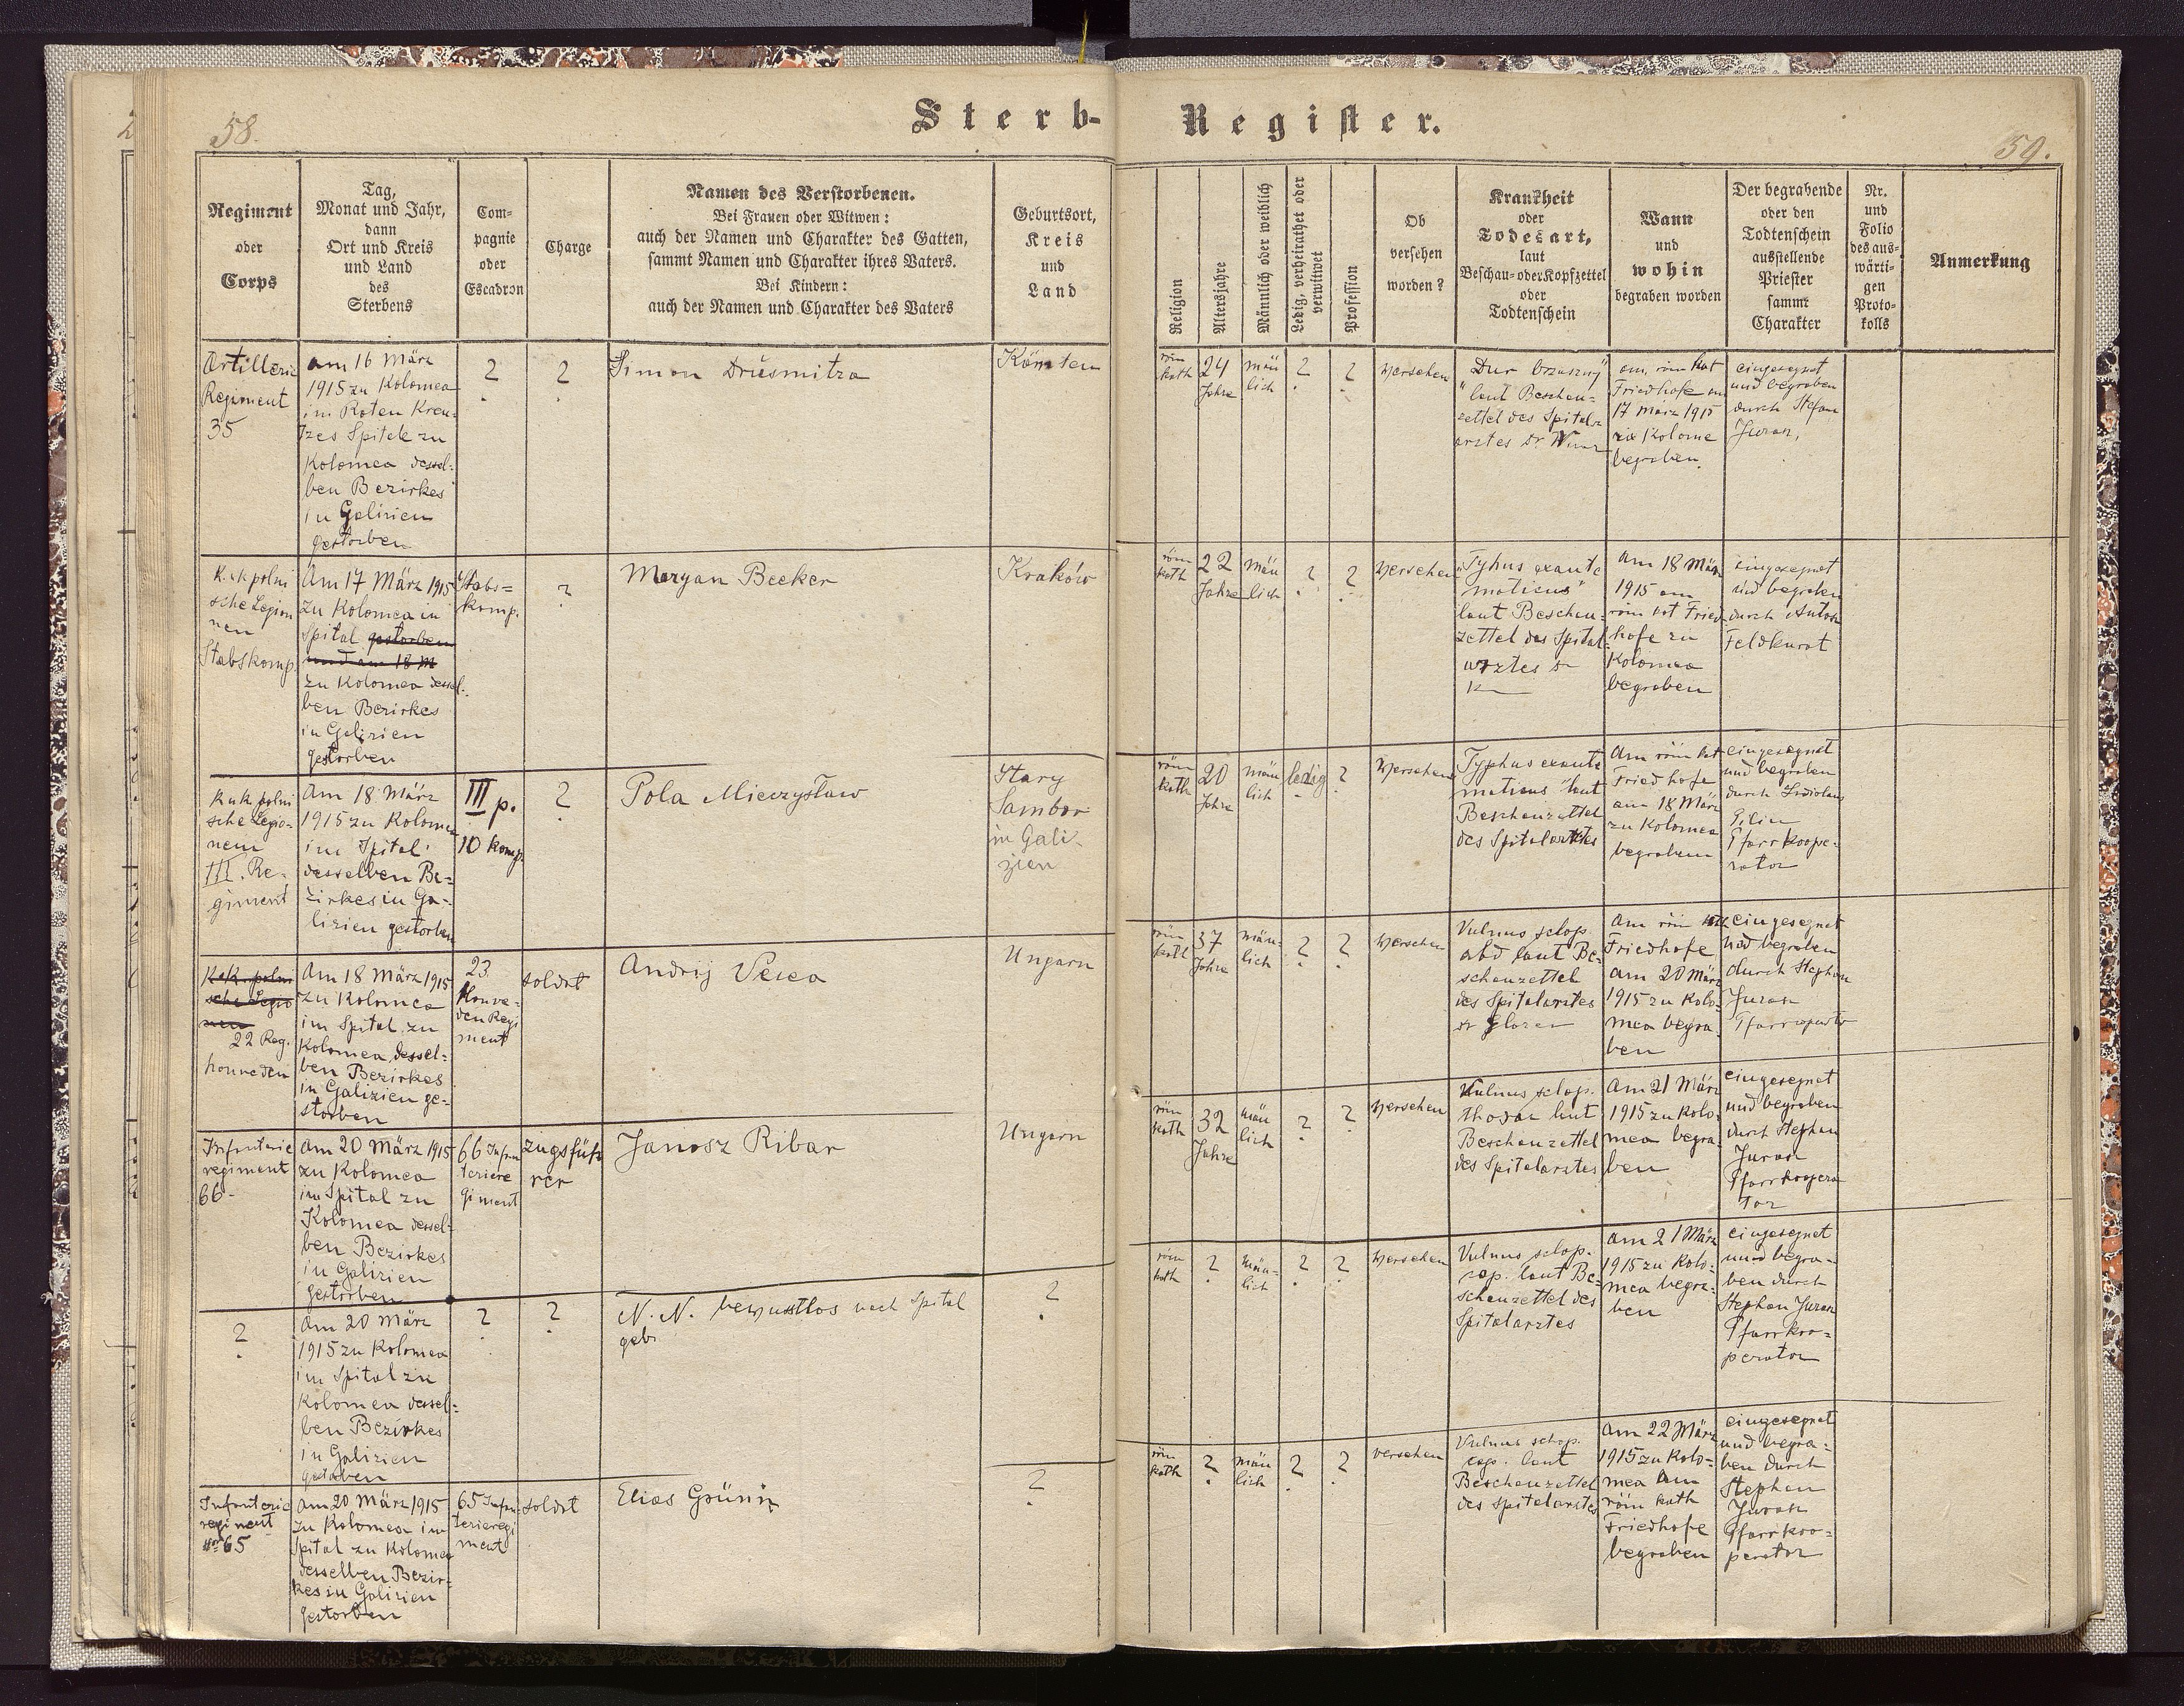 58.
Sterb-Register.
59.
Regiment
oder
Corps
Tag,
Monat und Jahr,
dann
Ort und Kreis
und Land
des
Sterbens
Com-
pagnie
oder
Escadron
Charge
Namen des Verstorbenen.
Bei Frauen oder Witwen:
auch der Namen und Charakter des Gatten,
sammt Namen und Charakter ihres Vaters.
Bei Kindern:
auch der Namen und Charakter des Vaters
Geburtsort,
Kreis
und
Land
Religion
Altersjahre
Männlich oder weiblich
Ledig, verheirathet oder
verwitwet
Profession
Ob
versehen
worden?
Krankheit
oder
Todesart,
laut
Beschau- oder Kopfzettel
oder
Todtenschein
Wann
und
wohin
begraben worden
Der begrabende
oder den
Todtenschein
ausstellende
Priester
sammt
Charakter
Nr.
und
Folio
des aus-
wärti-
gen
Proto-
kolls
Anmerkung
Artillerie
Regiment
35
am 16 März
1915 zu Kolomea
im Roten Kreu-
zes Spitele zu
Kolomea dessel-
ben Bezirkes
in Galizien
gestorben
?
?
Simon Drusmitza
Kärnten
röm
kath
24
Jahre
män
lich
?
?
versehen
"Dur brzuszny"
laut Beschau-
zettel des Spitals
arztes Dr
am röm kat
Friedhofe am
17 März 1915
zu Kolome
begraben.
eingesegnet
und begraben
durch Stefan
Juran,
K. u k polni
sche Legion
nen
Stabskomp.
Am 17 März 1915
zu Kolomea in
Spital gestorben
und am 18 M
zu Kolomea dessel-
ben Bezirkes
in Galizien
gestorben
Stabs=
komp.
?
Maryan Becker
Kraków
röm
kath
22
Jahre
män
lich
?
?
versehen
"Tyhus exante
maticus"
laut Beschau-
zettel des Spital-
arztes Dr
am 18 März
1915 am
röm kat Fried-
hofe zu
Kolomea
begraben
eingesegnet
und begraben
durch Anton
Feldkurat
K u k polni
sche Legio-
nem
III. Re-
giment
Am 18 März
1915 zu Kolomea
im Spital
desselben Be-
zirkes in Ga-
lizien gestorben
III p.
10 komp.
?
Pola Mieczysław
Stary
Sambor
in Gali-
zien
röm
kath
20
Jahre
män
lich
ledig
?
versehen
Typhus exante
maticus "laut
Beschauzettel
des Spitalarztes
Am röm kat
Friedhofe
am 18 März
zu Kolomea
begraben
eingesegnet
und begraben
durch
Pfarrkoope-
rator
K u k polni
sche Legio
nen
22 Reg.
honveden
Am 18 März 1915
zu Kolomea
im Spital zu
Kolomea dessel-
ben Bezirkes
in Galizien ge-
storben
23
Honve-
den Regi
ment
soldat
Andrij Vecea
Ungarn
röm
kath
37
Jahre
män-
lich
?
?
versehen
Vulnus sclop.
abd laut Be-
schauzettel
des Spitalarztes
Dr
Am röm kath
Friedhofe
am 20 März
1915 zu Kolo-
mea begra-
ben
eingesegnet
und begraben
durch Stephan
Juran
Infanterie
regiment
66-
am 20 März 1915
zu Kolomea
im Spital zu
Kolomea dessel-
ben Bezirkes
in Galizien
gestorben
66 Infan
teriere
giment
zugsfüh
rer
Janosz Ribar
Ungarn
röm
kath
32
Jahre
män
lich
?
?
versehen
Vulnus sclop.
thorax laut
Beschauzettel
des Spitalarztes
Am 21 März
1915 zu Kolo-
mea begra-
ben
eingesegnet
und begraben
durch Stephan
Juran
Pfarrkoopera
tor
?
Am 20 März
1915 zu Kolomea
im Spital zu
Kolomea dessel-
ben Bezirkes
in Galizien
gestorben
?
?
N. N. bewusstlos nach Spital
geb.
?
röm
kath
?
män-
lich
?
?
versehen
Vulnus sclop.
cap. laut Be-
schauzettel des
Spitalarztes
am 21 März
1915 zu Kolo-
mea begra-
ben
eingesegnet
und begra-
ben durch
Stephan Juran
Pfarrkoo-
perator
Infanterie
regiment
Nr 65
am 20 März 1915
zu Kolomea im
Spital zu Kolomea
desselben Bezir-
kes in Galizien
gestorben
65 Infan
terieregi
ment
soldat
Elias Grünig
?
röm
kath
?
män
lich
?
?
versehen
Vulnus sclop.
cap. laut
Beschauzettel
des Spitalarztes
Am 22 März
1915 zu Kolo-
mea am
röm kath
Friedhofe
begraben
eingesegnet
und begra-
ben durch
Stephan
Juran
Pfarrkoo-
perator